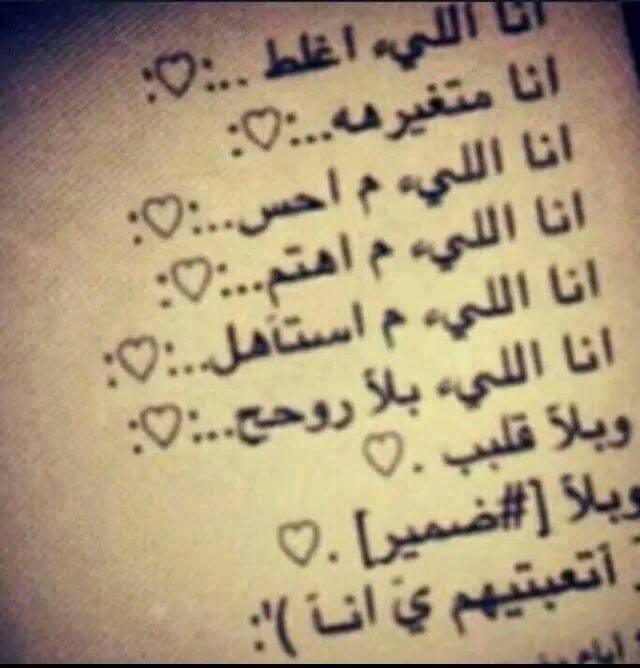 انا الليء اغلط ...:♡:
انا متغيرهه...:♡:
انا الليء م احس...:♡:
انا الليء م اهتم...:♡:
انا الليء م استآهل...:♡:
انا الليء بلآ روحح...:♡:
وبلآ قلبب .♡
وبلآ [#ضمير] .♡
آتعبتيهم يَ انـآ )':